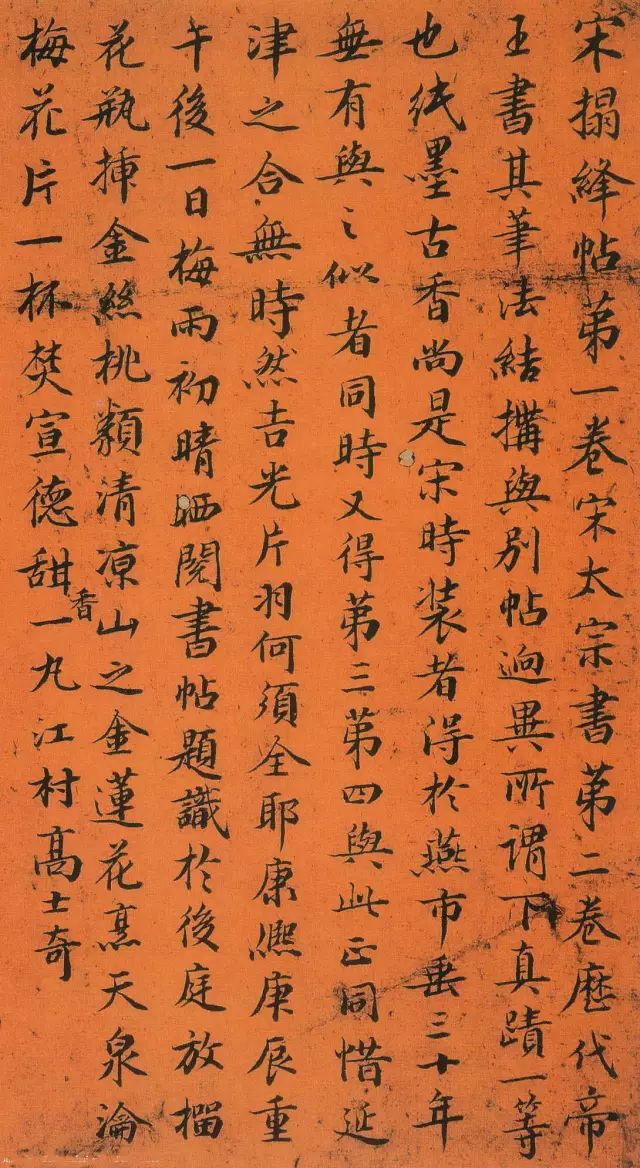 宋搨絳帖第一卷宋太宗書第二卷歷代帝
王書其筆法結搆與別帖迥異所謂下真蹟一等
也紙墨古香尚是宋時装者得於燕市垂三十年
無有與之似者同時又得第三第四與此正同惜延
津之合無時然吉光片羽何須全耶康熙庚辰重
午後一日梅雨初晴晒閱書帖題識於後庭放榴
花瓶揷金絲桃類清凉山之金蓮花烹天泉瀹
梅花片一杯焚宣德甜香一丸江村高士奇